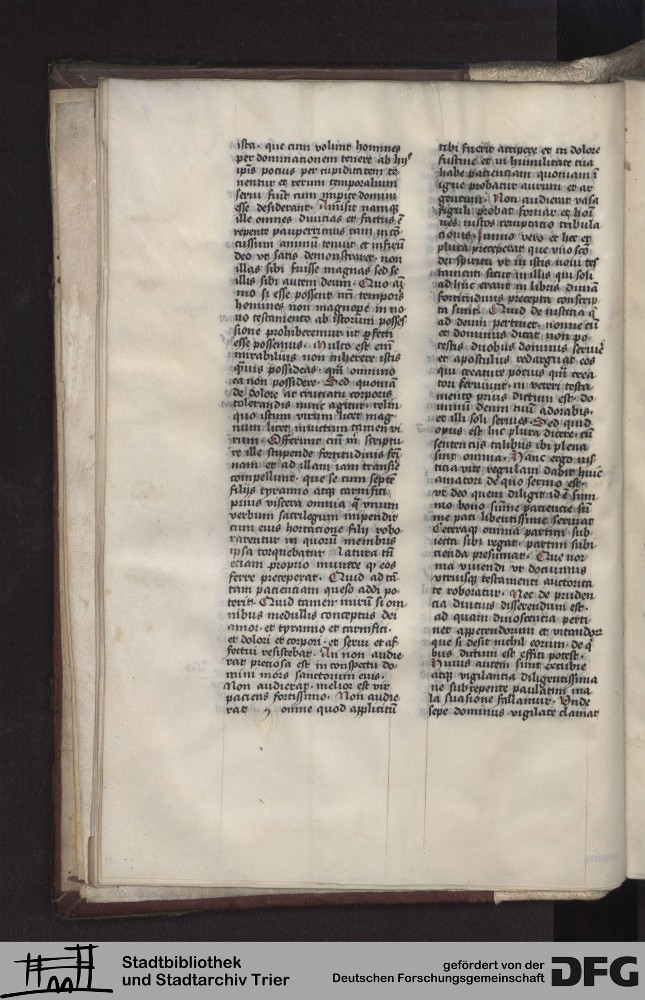 ista · que cum volunt homines
per dominationem tenere ab hijs
ip̄is pocius per cupiditatem te
nentur et rerum temporalium
serui fiūt cum impie domini
esse desiderant · Amisit namqꝫ
ille omnes diuicias et factus ē
repente pauperrimus tam incō
cussum animū tenuit et infixū
deo vt satis demonstraret non
illas sibi fuisse magnas sed se
illis sibi autem deum · Quo ai
mo si esse possent nr̄i temporis
homines non magnope in no
uo testamento ab istorum posses
sione prohiberemur ut perfecti
esse possemus · Multo est em̄
mirabilius non inherere istis
qͣuis possideas · qm̄ omnino
ea non possidere · Sed quoniā
de dolore ac cruciatu corporis
tolerandis nunc agitur · relin
quo istum virum licet mag
num licet inuictum tamen vi
rum · Offerunt em̄ m̄ scriptu
re ille stupende fortitudinis femi
nam et ad illam iam transire
compellunt · que se cum septē
filijs tyranno atqꝫ carnifici
prius viscera omnia qͣ vnum
verbum sacrilegum impendit
cum eius hortacione filij robo
rarentur in quorū membris
ipsa torquebatur · latura tn̄
eciam proprio munere q eos
ferre preceperat · Quid ad tā
tam pacientiam queso addi po
terit · Quid tamen mirū si om
nibus medullis conceptus dei
amor · et tyranno et carnifici ·
et dolori et corpori · et sexui et af
fectui resistebat · An non audie
rat preciosa est in conspectu do
mini mors sanctorum eius ·
Non audierat · melior est vir
paciens fortissimo · Non audie
rat omne quod applicitū
tibi fuerit accipere et in dolore
sustine et in humilitate tua
habe pacienciam quoniam ī
igne probatur aurum et ar
gentum · Non audierat vasa
figuli probat fornax et hoī
nes iustos temptatio tribula
cionis · Immo vero et hec et
plura preceperat que vno sco
dei spiritu vt in istis noui tes
tamenti sicut in illis qui soli
adhuc erant in libris diuinā
fortitudinis precepta conscrip
ta sunt · Quid de iusticia q̄
ad deum pertinet · nonne cū
et dominus dicat non po
testis duobus dominis seruire
et apostolus redarguat eos
qui creature pocius qm̄ crea
tori seruiunt · in veteri testa
mento prius dictum est · do
minū deum tuū adorabis ·
et illi soli seruies · Sed quid
opus est hic plura dicere · cū
sentencijs talibus ibi plena
sint omnia · Hanc ergo ius
ticia vite regulam dabit hui9
amator de quo sermo est ·
vt deo quem diligit id ē sum
mo bono summe paciencie sū
me paci libentissime seruiat
Ceteraqꝫ omnia partim sub
iecta sibi regat · partim subi
cienda presumat · Que nor
ma viuendi vt docuimus
vtriusqꝫ testamenti auctorita
te roboratur · Nec de pruden
cia diucius disserendum est ·
ad quam dinoscentia perti
net appetendorum et vitandor
que si desit nichil eorum · de q
bus dictum est effici potest ·
Huius autem sunt excubie
atqꝫ vigilantia diligentissima
ne subrepente paulatim ma
la suasione fallamur · Vnde
sepe dominus vigilate clamat
Stadtbibliothek
und Stadtarchiv Trier
gefördert von der
Deutschen Forschungsgemeinschaft
DFG